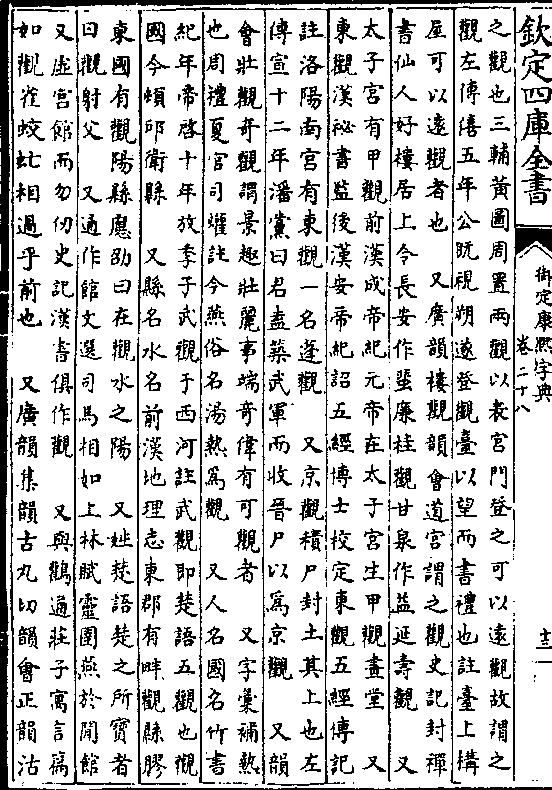 欽定四庫全書
御定康熙字典
卷二十八
之觀也三輔黃圖周置兩觀以表宮門登之可以遠觀故謂之
觀左傳僖五年公既視朔遂登觀臺以望而書禮也註臺上構
屋可以遠觀者也 又廣韻樓觀韻會道宮謂之觀史記封禪
書仙人好樓居上令長安作蜚廉桂觀甘泉作益延壽觀 又
太子宮有甲觀前漢成帝紀元帝在太子宮生甲觀畫堂 又
東觀漢祕書監後漢安帝紀詔五經博士校定東觀五經傳記
註洛陽南宮有東觀一名蓬觀 又京觀積尸封土其上也左
傳宣十二年潘黨曰君盍築武軍而收晉尸以爲京觀 又韻
會壯觀奇觀謂景趣壯麗事端奇偉有可觀者 又字彙補熱
也周禮夏官司爟註今燕俗名湯熱爲觀 又人名國名竹書
紀年帝啓十年放季子武觀于西河註武觀即楚語五觀也觀
國今頓邱衛縣 又縣名水名前漢地理志東郡有畔觀縣膠
東國有觀陽縣應劭曰在觀水之陽 又姓楚語楚之所寶者
曰觀射父 又通作館文選司馬相如上林賦靈圄燕於閒館
又虛宮館而勿仞史記漢書俱作觀 又與鸛通莊子寓言篇
如觀雀蚊虻相過乎前也 又廣韻集韻古丸切韻會正韻沽